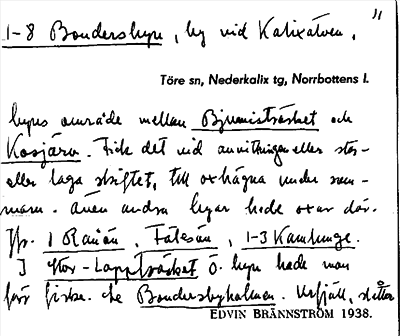 11
1-8 Bondersbyn, by vid Kalixälven.
Töre sn, Nederkalix tg, Norrbottens l.
byns område mellan Bjumisträsket och
Kosjärv. Fick det vid avvittringen eller stor-
eller laga skiftet, till oxhägna under som-
maren. Även andra byar hade oxar där.
Jfr. 1 Rånön, Fåtesän, 1-3 Kamlunge.
I Stor-Lappträsket ö. byn hade man
förr fiske. Se Bondersbyholmen. Utfjäll, slåtter
EDVIN BRÄNNSTRÖM 1938.